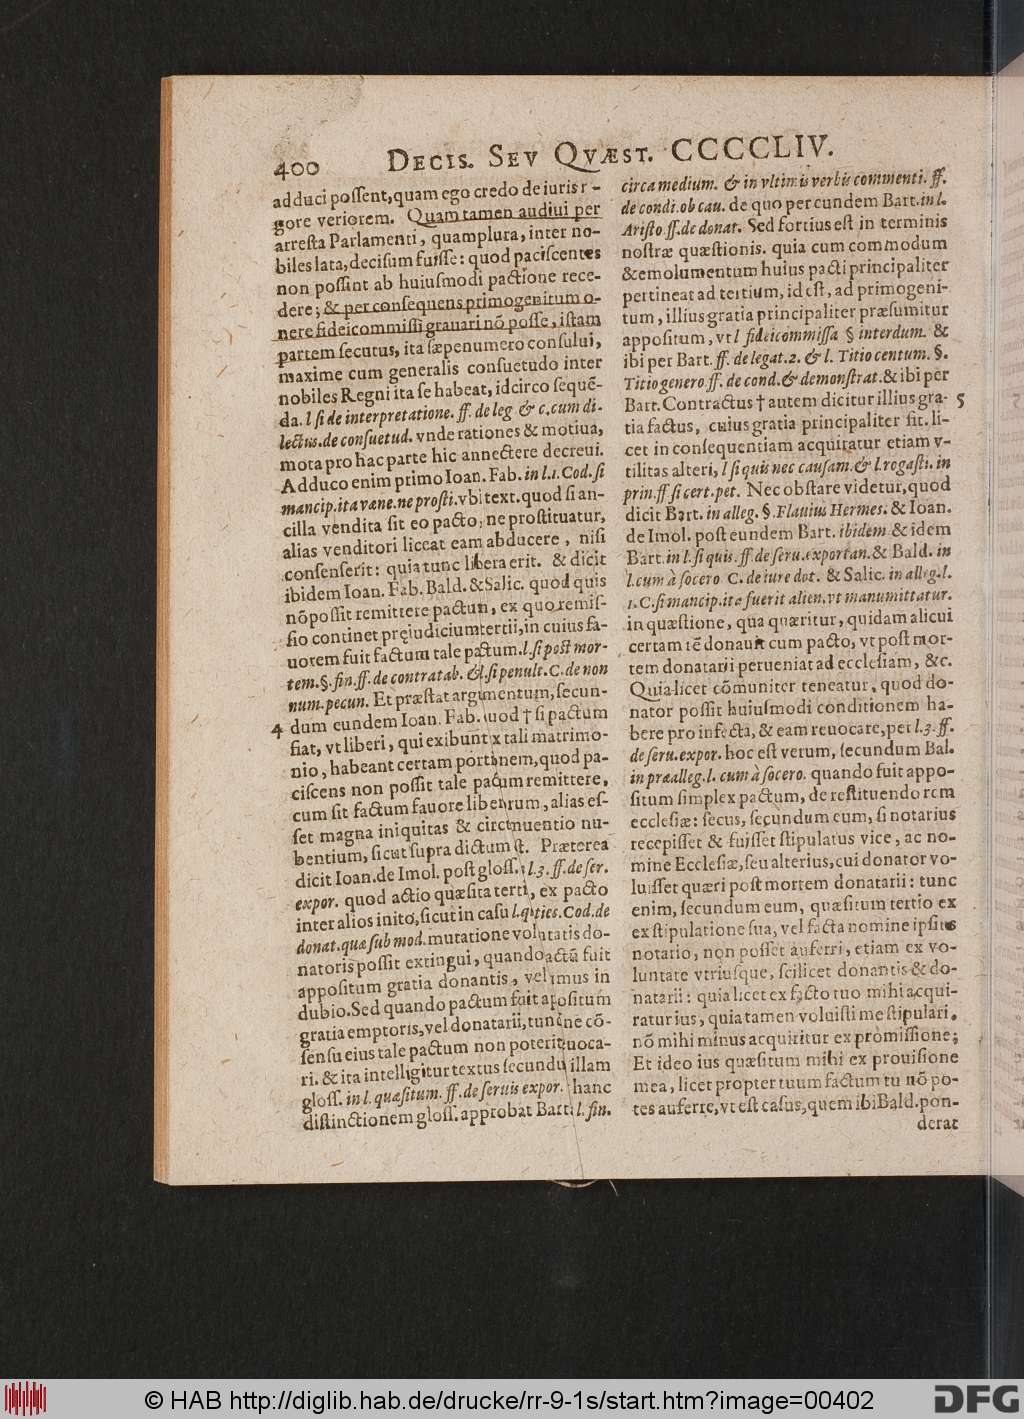 400 DECIS. SEV QVÆST. CCCCCLIV.
adduci possent, quam ego credo de iuris r-
gore veriorem. Quam tamen audiui per
arresta Parlamenti, quamplura, inter no-
biles lata, decisum fuisse: quod paciscentes
non possint ab huiusmodi pactione rece-
dere; & per consequens primogenitum o-
nere fideicommissi grauari nõ posse, istam
partem secutus, ita sæpenumero consului,
maxime cum generalis consuetudo inter
nobiles Regni ita se habeat, idcirco sequẽ-
da. l si de interpretatione. ff. de leg & c. cum di-
lectus. de consuetud. vnde rationes & motiua,
mota pro hac parte hic annectere decreui.
Adduco enim primo Ioan. Fab. in l.1. Cod. si
mancip. ita væne. ne prosti. vbi text. quod si an-
cilla vendita sit eo pacto, ne prostituatur,
alias venditori liceat eam abducere, nisi
consenserit: quia tunc libera erit. & dicit
ibidem Ioan. Fab. Bald. & Salic. quod quis
nõ possit remittere pactum, ex quo remis-
sio continet pręiudicium tertii, in cuius fa-
uorem fuit factum tale pactum. l. si post mor-
tem. §. fin. ff. de contra tab. & l. si penult. C. de non
num. pecun. Et præstat argumentum, secun-
4 dum eundem Ioan. Fab. quod † si pactum
fiat, vt liberi, qui exibunt ex tali matrimo-
nio, habeant certam portionem, quod pa-
ciscens non possit tale pactum remittere,
cum sit factum fauore liberorum, alias es-
set magna iniquitas & circunuentio nu-
bentium, sicut supra dictum est. Præterea
dicit Ioan. de Imol. post gloss. l. 3. ff. de ser.
expor. quod actio quæsita tertio, ex pacto
inter alios inito, sicut in casu l. quoties. Cod. de
donat. quæ sub mod. mutatione voluntatis do-
natoris possit extingui, quando actũ fuit
appositum gratia donantis, vel simus in
dubio. Sed quando pactum fuit apositum
gratia emptoris, vel donatarii, tunc sine cõ-
sensu eius tale pactum non poterit reuoca-
ri. & ita intelligitur textus secundum illam
gloss. in l. quæsitum. ff. de seruis expor. hanc
distinctionem gloss. approbat Bart. l. fin.
circa medium. & in vltimis verbis commenti. ff.
de condi. ob cau. de quo per eundem Bart. in l.
Aristo ff. de donat. Sed fortius est in terminis
nostræ quæstionis. quia cum commodum
& emolumentum huius pacti principaliter
pertineat ad tertium, id est, ad primogeni-
tum, illius gratia principaliter præsumitur
appositum, vt l fideicommissa § interdum. &
ibi per Bart. ff. de legat. 2. & l. Titio centum. §.
Titio genero ff. de cond. & demonstrat. & ibi per
Bart. Contractus † autem dicitur illius gra- 5
tia factus, cuius gratia principaliter fit. li-
cet in consequentiam acquiratur etiam v-
tilitas alteri, l si quis nec causam. & l. rogasti. in
prin. ff si cert. pet. Nec obstare videtur, quod
dicit Bart. in alleg. §. Flauius Hermes. & Ioan.
de Imol. post eundem Bart. ibidem & idem
Bart. in l. si quis. ff. de seru. exportan. & Bald. in
l. cum à socero C. de iure dot. & Salic. in alleg. l.
1. C. si mancip. ita fuerit alien. vt manumittatur.
in quæstione, qua quæritur, quidam alicui
certam rẽ donauit cum pacto, vt post mor-
tem donatarii perueniat ad ecclesiam, &c.
Quia licet cõmuniter teneatur, quod do-
nator possit huiusmodi conditionem ha-
bere pro infecta, & eam reuocare, per l. 3. ff.
de seru. expor. hoc est verum, secundum Bal.
in præalleg. l. cum à socero. quando fuit appo-
situm simplex pactum, de restituendo rem
ecclesiæ: secus, secundum eum, si notarius
recepisset & fuisset stipulatus vice, ac no-
mine Ecclesiæ, seu alterius, cui donator vo-
luisset quæri post mortem donatarii: tunc
enim, secundum eum, quæsitum tertio ex
ex stipulatione sua, vel facta nomine ipsius
notario, non posset auferri, etiam ex vo-
luntate vtriusque, scilicet donantis & do-
natarii: quia licet ex facto tuo mihi acqui-
ratur ius, quia tamen voluisti me stipulari,
nõ mihi minus acquiritur ex promissione;
Et ideo ius quæsitum mihi ex prouisione
mea, licet propter tuum factum tu nõ po-
tes auferre, vt est casus, quem ibi Bald. pon-
derat
© HAB http://diglib.hab.de/drucke/rr-9-1s/start.htm?image=00402
DFG